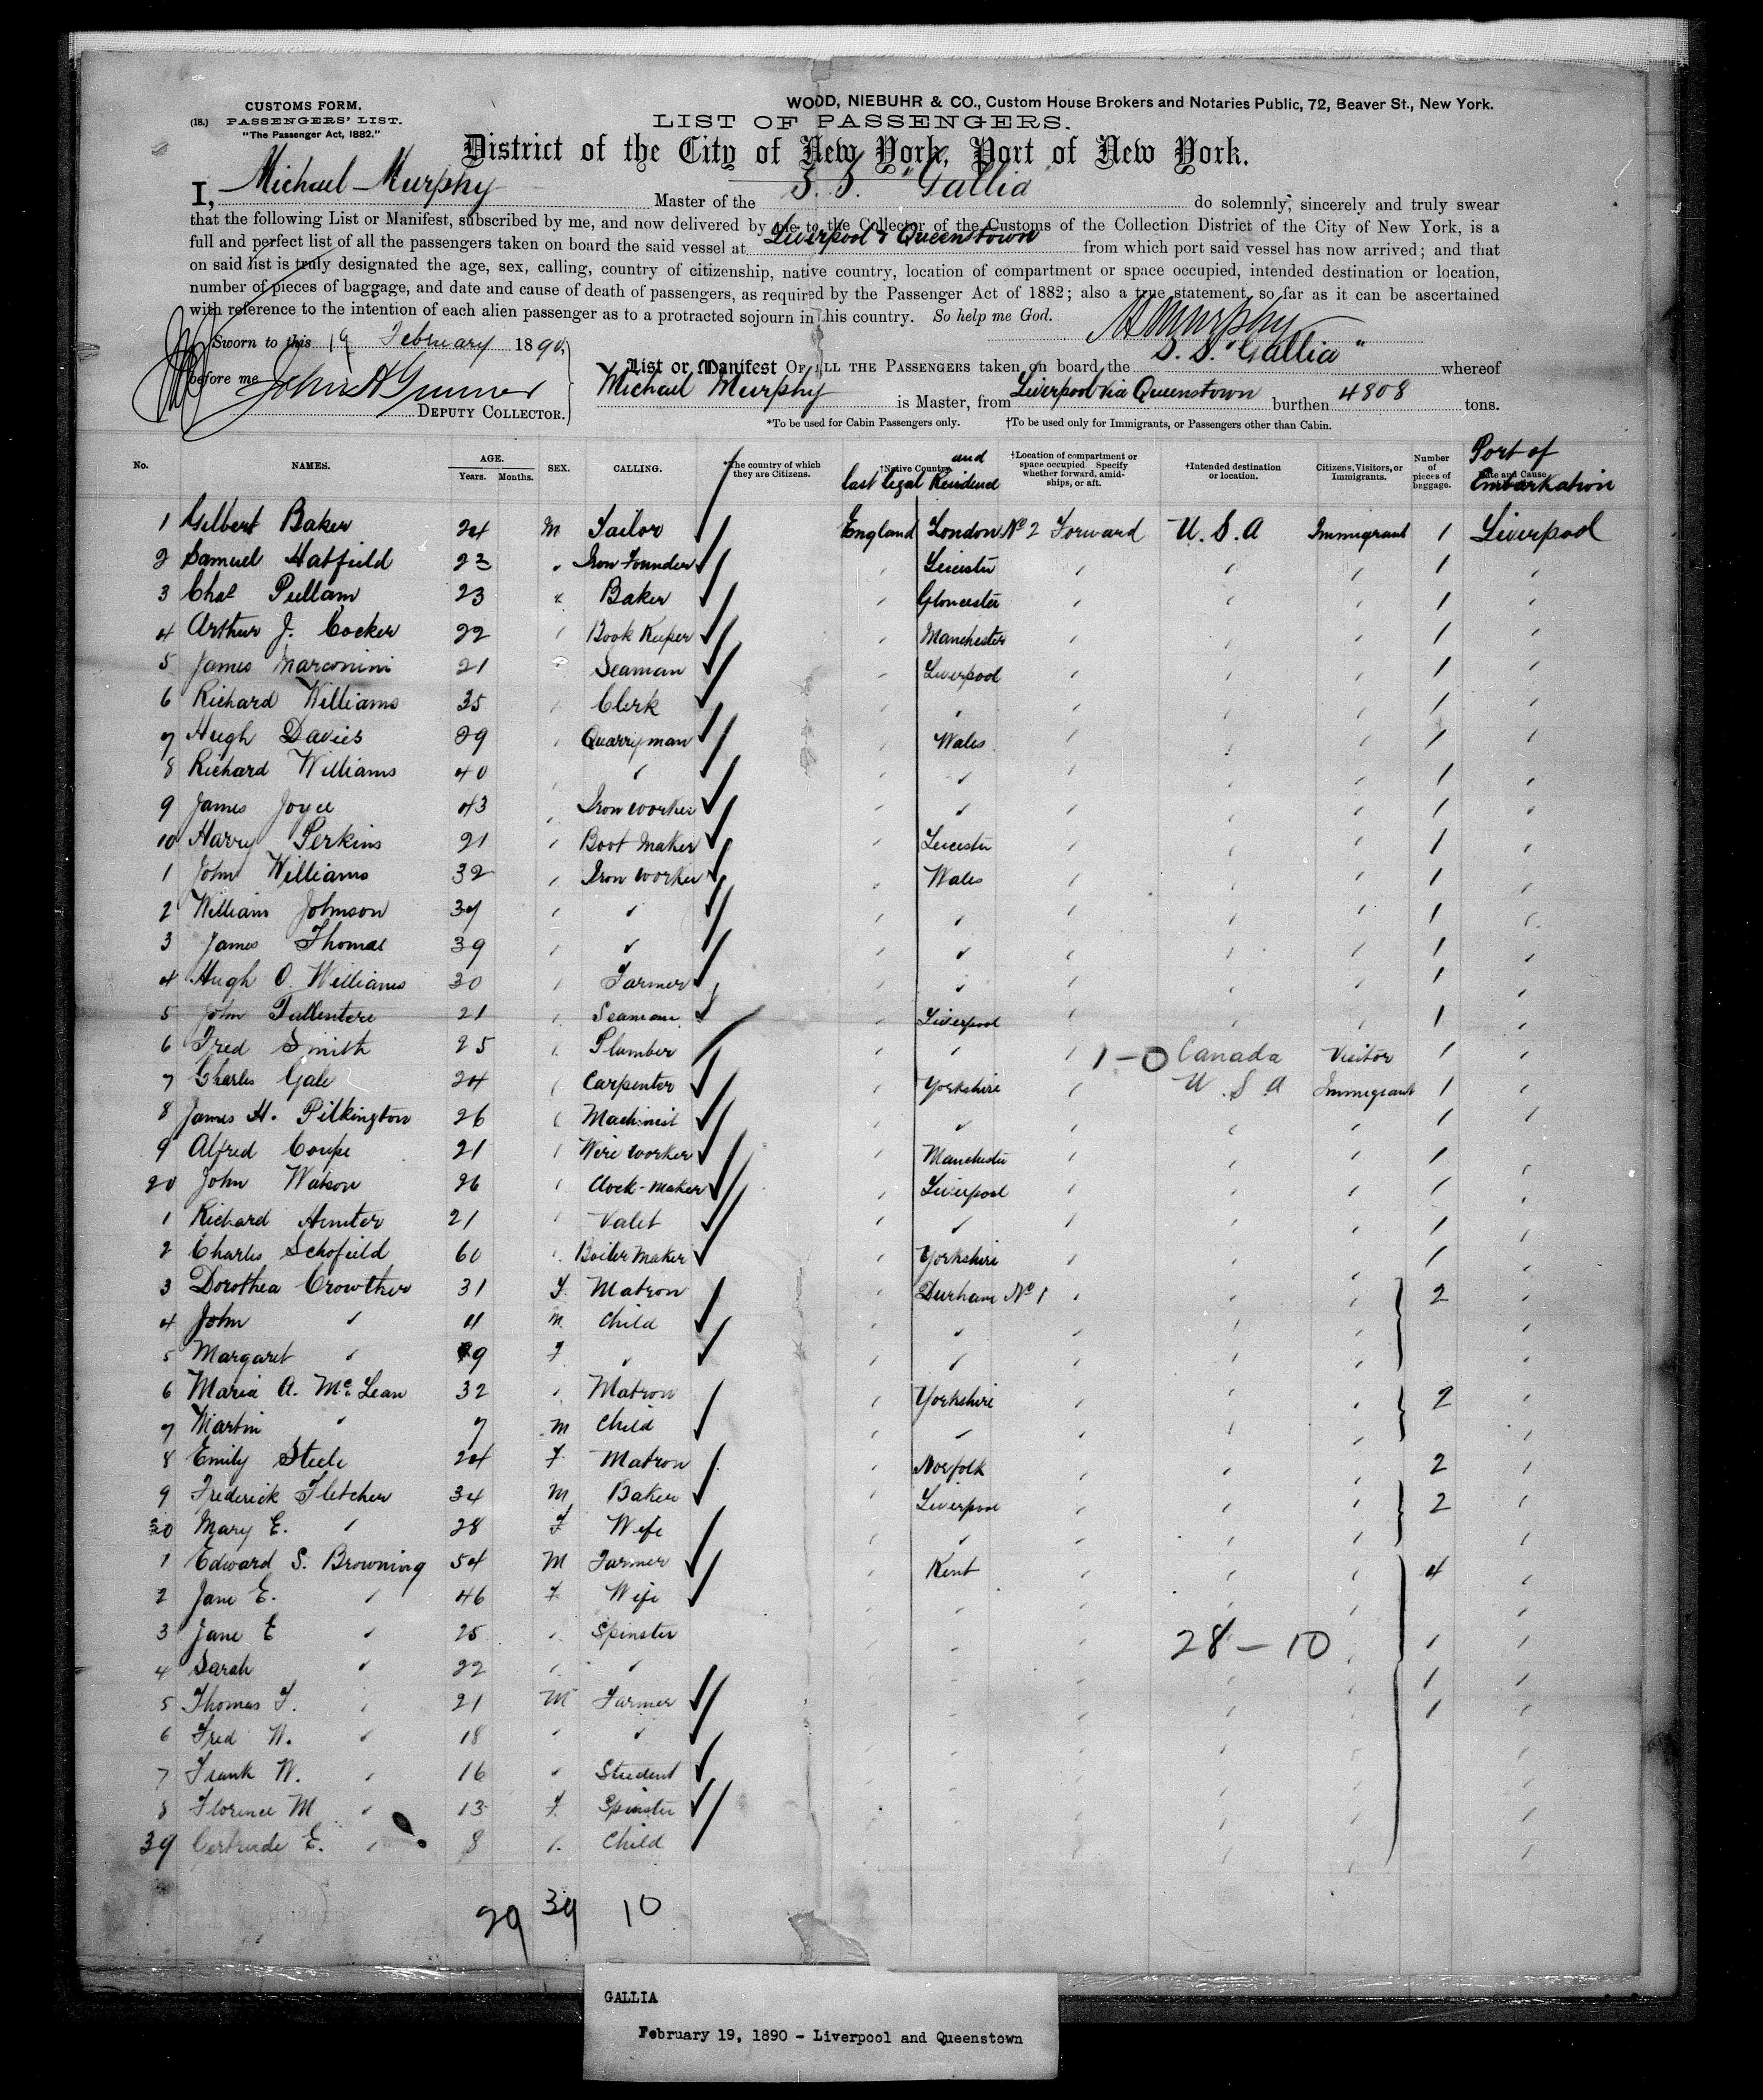 CUSTOMS FORM.
(18.) PASSENGERS' LIST.
"The Passenger Act, 1882."
WOOD, NIEBUHR & CO., Custom House Brokers and Notaries Public, 72, Beaver St., New York.
LIST OF PASSENGERS.
District of the City of New York, Port of New York.
I, Michael Murphy Master of the S. S. "Gallia" do solemnly, sincerely and truly swear
that the following List or Manifest, subscribed by me, and now delivered by me to the Collector of the Customs of the Collection District of the City of New York, is a
full and perfect list of all the passengers taken on board the said vessel at Liverpool & Queenstown from which port said vessel has now arrived; and that
on said list is truly designated the age, sex, calling, country of citizenship, native country, location of compartment or space occupied, intended destination or location,
number of pieces of baggage, and date and cause of death of passengers, as required by the Passenger Act of 1882; also a true statement, so far as it can be ascertained
with reference to the intention of each alien passenger as to a protracted sojourn in this country. So help me God.
M Murphy
Sworn to this 19 February 1890,
before me
DEPUTY COLLECTOR.
List or Manifest OF ALL THE PASSENGERS taken on board the S. S. "Gallia" whereof
Michael Murphy is Master, from Liverpool via Queenstown burthen 4808 tons.
*To be used for Cabin Passengers only. †To be used only for Immigrants, or Passengers other than Cabin.
No. NAMES. AGE. Years. Months. SEX. CALLING. *The country of which they are Citizens. †Native Country and last legal Residence †Location of compartment or space occupied. Specify whether forward, amidships, or aft. †Intended destination or location. Citizens, Visitors, or Immigrants. Number of pieces of baggage. Date and Cause Port of Embarkation
1 Gilbert Baker 24 M Tailor England London No 2 Forward U. S. A Immigrant 1 Liverpool
2 Samuel Hatfield 23 " Iron Founder " Leicester " " " 1 "
3 Chas Pullam 23 " Baker " Gloucester " " " 1 "
4 Arthur J. Cocker 22 " Book Keeper " Manchester " " " 1 "
5 James Marconini 21 " Seaman " Liverpool " " " 1 "
6 Richard Williams 35 " Clerk " " " " " 1 "
7 Hugh Davies 29 " Quarryman " Wales " " " 1 "
8 Richard Williams 40 " " " " " " " 1 "
9 James Joyce 43 " Iron worker " " " " " 1 "
10 Harry Perkins 21 " Boot Maker " Leicester " " " 1 "
1 John Williams 32 " Iron worker " Wales " " " 1 "
2 William Johnson 34 " " " " " " " 1 "
3 James Thomas 39 " " " " " " " 1 "
4 Hugh O. Williams 30 " Farmer " " " " " 1 "
5 John 21 " Seaman " Liverpool " " " 1 "
6 Fred Smith 25 " Plumber " " " 1-0 Canada Visitor 1 "
7 Charles Gale 24 " Carpenter " Yorkshire " U. S. A Immigrant 1 "
8 James H. Pilkington 26 " Machinist " " " " " 1 "
9 Alfred Coupe 21 " Wire worker " Manchester " " " 1 "
20 John Watson 26 " Clock-maker " Liverpool " " " 1 "
1 Richard Hunter 21 " Valet " " " " " 1 "
2 Charles Schofield 60 " Boiler Maker " Yorkshire " " " 1 "
3 Dorothea Crowther 31 F Matron " Durham No 1 " " " 2 "
4 John " 11 M Child " " " " " "
5 Margaret " 9 F " " " " " " "
6 Maria A. McLean 32 " Matron " Yorkshire " " " 2 "
7 Martin " 7 M Child " " " " " "
8 Emily Steele 24 F Matron " Norfolk " " " 2 "
9 Frederick Fletcher 34 M Baker " Liverpool " " " 2 "
30 Mary E. " 28 F Wife " " " " " "
1 Edward S. Browning 54 M Farmer " Kent " " " 4 "
2 Jane E. " 46 F Wife " " " " " "
3 Jane E " 25 " Spinster " " " 28-10 " 1 "
4 Sarah " 22 " " " " " " " 1 "
5 Thomas F. " 21 M Farmer " " " " " 1 "
6 Fred W. " 18 " " " " " " " "
7 Frank W. " 16 " Student " " " " " "
8 Florence M " 13 F Spinster " " " " " "
39 Gertrude E. " 8 " Child " " " " "
29 39 10
GALLIA
February 19, 1890 - Liverpool and Queenstown